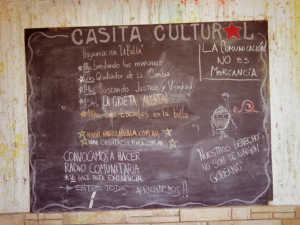 CASITA CULTURAL
Programación "LA Bulla"
bredando las mañanas
Quitador de la Cumbia
buscando Justicia y Verdad
LA GKETA
Las Escuelas en la bulla
WWW.RADIOLABULLA.COM.AR
WWW.CASITACULTURAL.COM.AR
CONVOCAMOS A HACER
RADIO COMUNITARIA
NO HACE FALTA EXPERIENCIA
ENTRE TODAS APRENDEMOS!!
LA COMUNICACIÓN
NO ES
MERCANCÍA
"NUESTROS DERECHOS
NO SON DE NINGÚN
GOBIERNO"